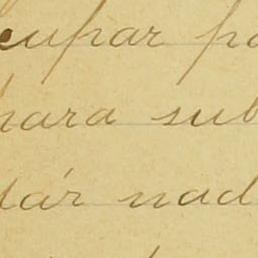 cupar pa
para sub
dár nad